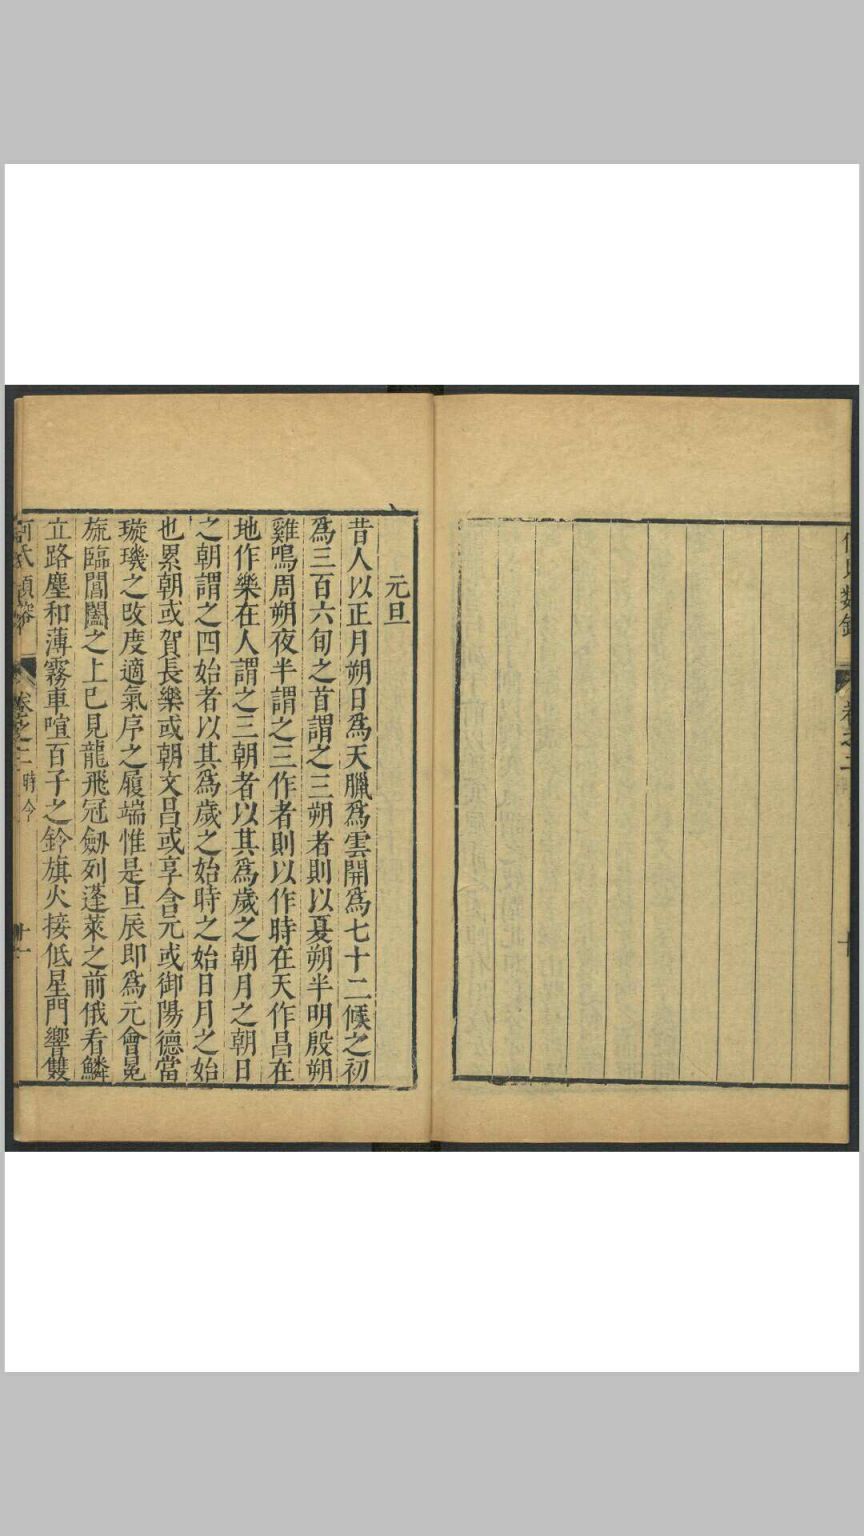 何氏類鎔
卷之二
元旦
昔人以正月朔日爲天臘爲雲開爲七十二候之初
爲三百六旬之首謂之三朔者則以夏朔半明殷朔
雞鳴周朔夜半謂之三作者則以作時在天作昌在
地作樂在人謂之三朝者以其爲歲之朝月之朝日
之朝謂之四始者以其爲歲之始時之始日月之始
也累朝或賀長樂或朝文昌或享含元或御陽德當
璇璣之改度適氣序之履端惟是旦辰即爲元會冕
旒臨閶闔之上已見龍飛冠劒列蓬萊之前俄看鱗
立路塵和薄霧車喧百子之鈴旗火接低星門響雙
何氏類鎔
卷之二 時令
十一